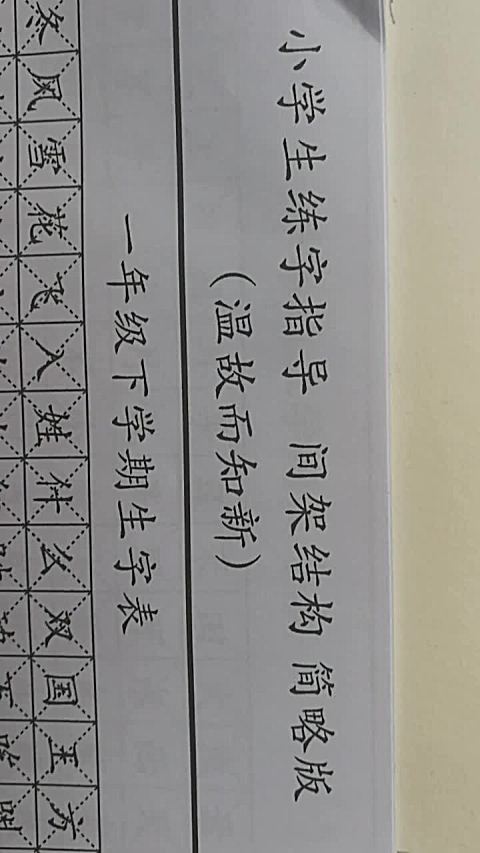 小学生练字指导 间架结构 简略版
（温故而知新）
一年级下学期生字表
冬风雪花飞入姓什么双国王方